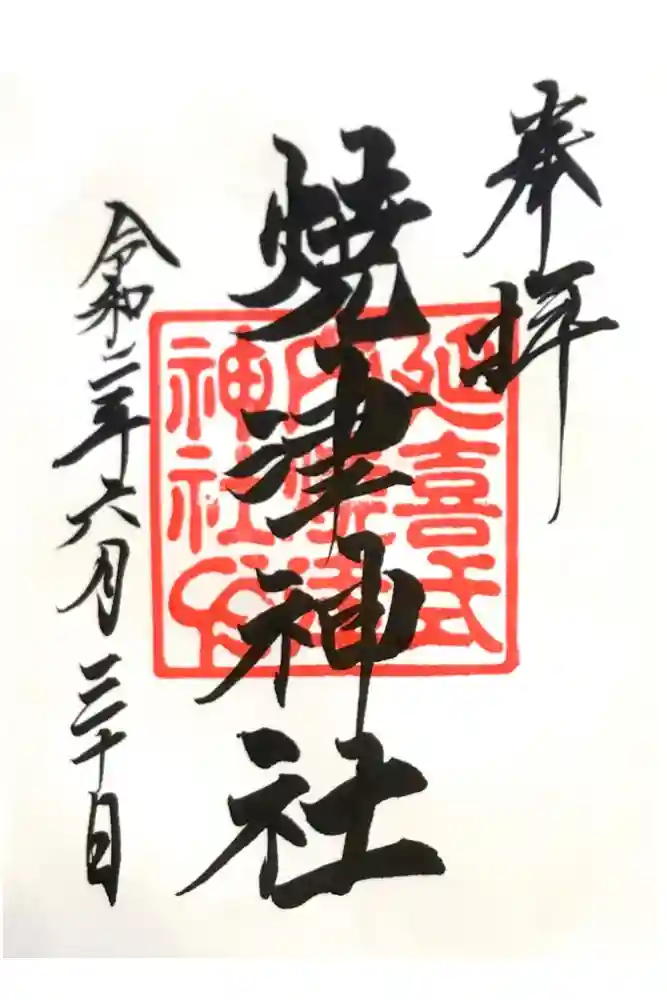 奉拝
延喜式
内焼津
神社印
焼津神社
令和二年六月三十日